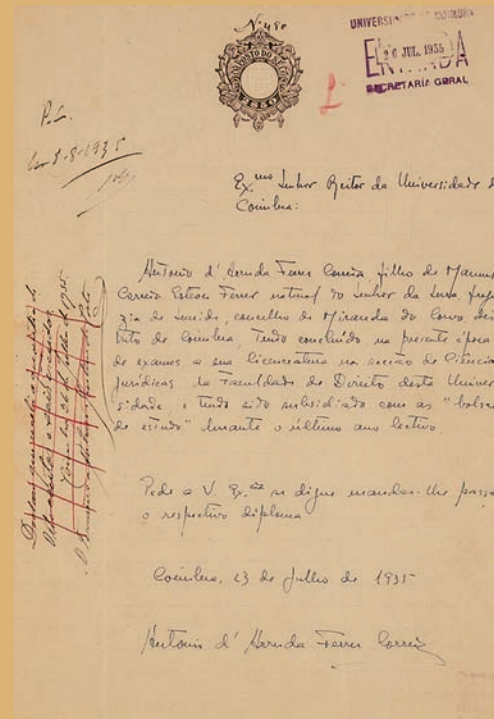 Nº 480
UNIVERSIDADE DE COIMBRA
26 JUL. 1935
ENTRADA
SECRETARÍA GERAL
IMPOSTO DO SELO
2$50
P.L.
5-8-1935
Ex.mo Senhor Reitor da Universidade d
Coimbra:
António d'Arruda Ferrer Correia filho de Manuel
Correia Esteves Ferrer natural do Senhor da Serra, fregue
zia de Semide, concelho de Miranda do Corvo, dis
trito de Coimbra, tendo concluído na presente época
de exames a sua licenciatura na secção de Ciências
Jurídicas, da Faculdade de Direito desta Univer
sidade, e tendo sido subsidiado com as "bolsas
de estudo" durante o último ano lectivo.
Pede a V. Ex.cia se digne mandar-lhe passa
o respectivo diploma
Coimbra, 23 de Julho de 1935
Antonio d'Arruda Ferrer Correia